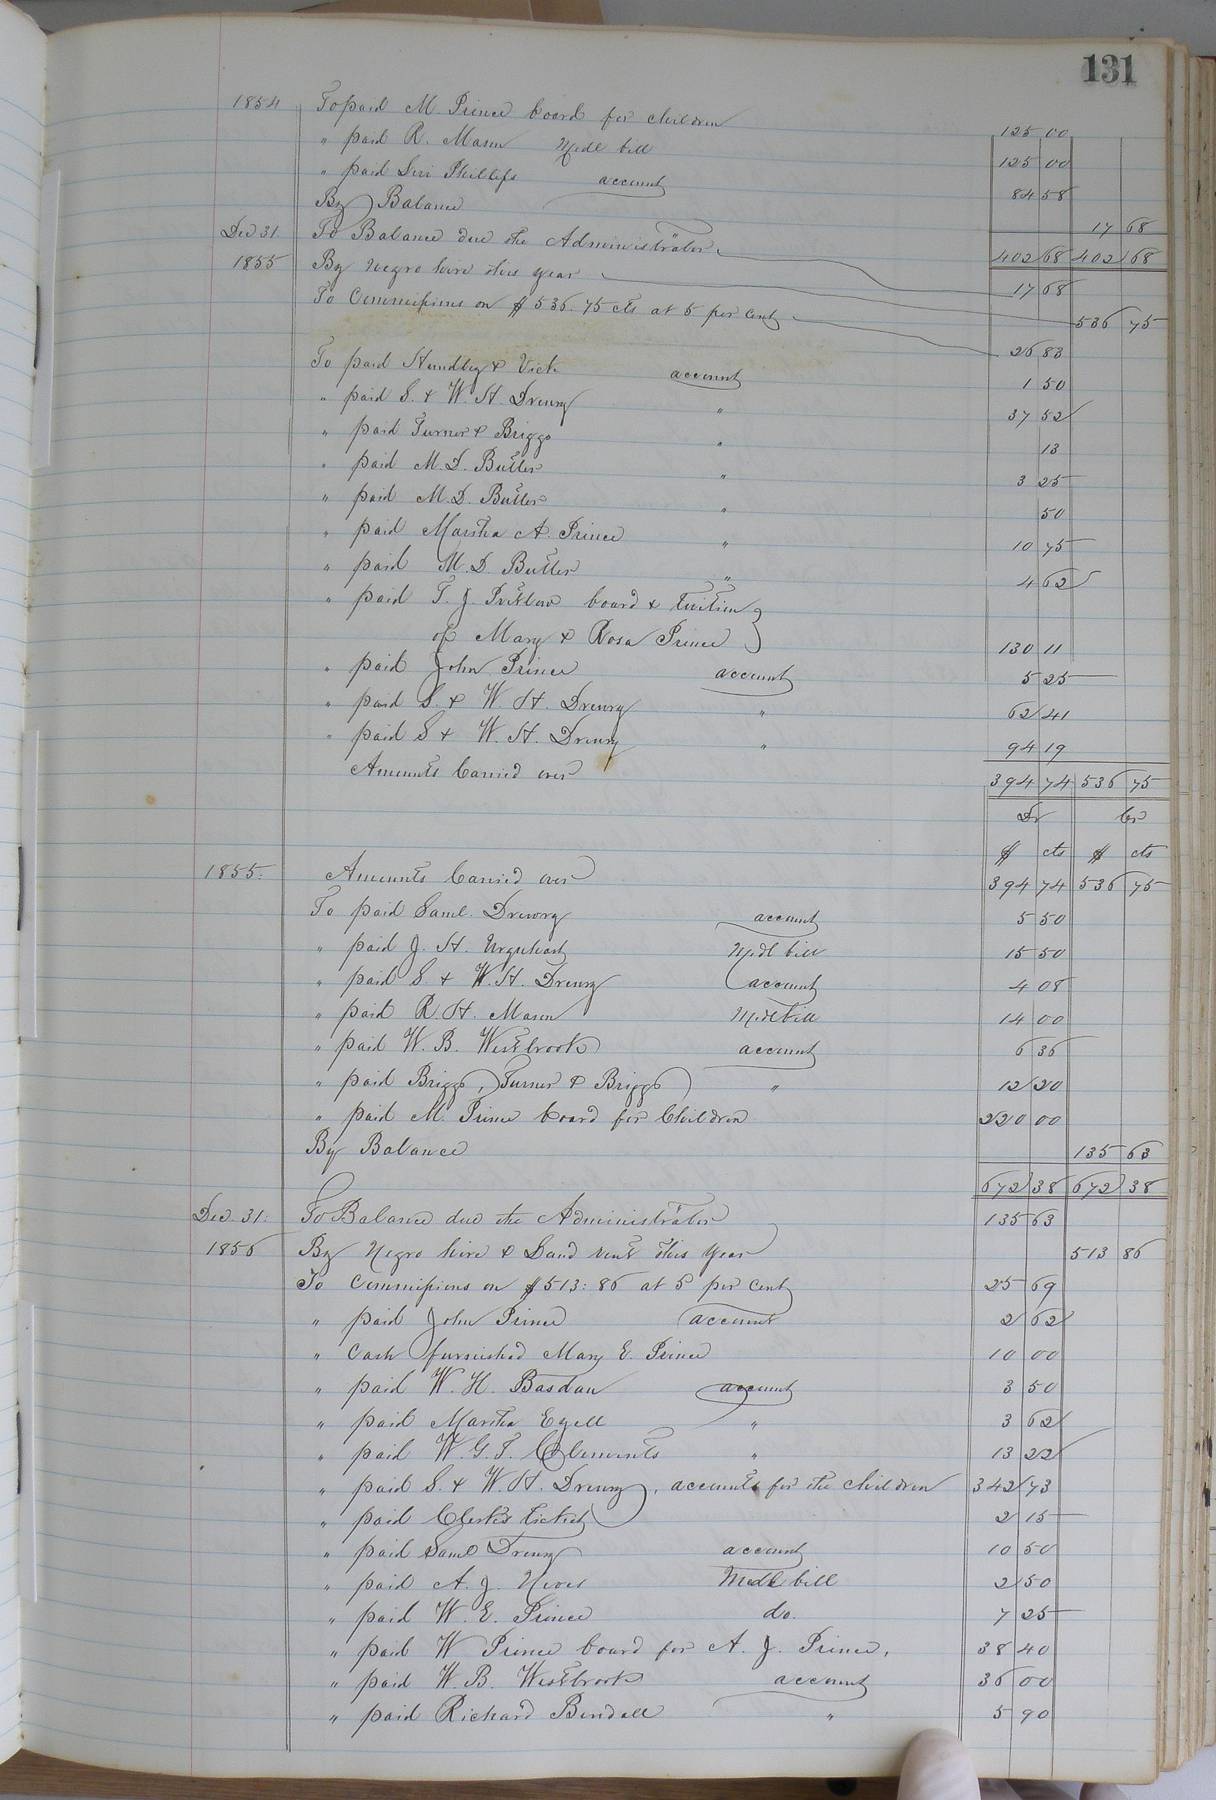 131
1854 To paid M Prince board for children 125 00
" paid R. Mason Medl bill 125 00
" paid Levi Phillips account 84 58
By Balance 17 68
402 68 402 68
Dec 31 To Balance due the Administrator 17 68
1855 By negro hire this year 536 75
To Commissions on $536.75 cts at 5 per cent 26 83
To paid Hundley & Vick account 1 50
" paid S. & W. H. Drewry " 37 52
" paid Turner & Briggs " 13
" paid M. D. Butler " 3 25
" paid M. D. Butler " 50
" paid Martha A. Prince " 10 75
" paid M. D. Butler " 4 62
" paid T. J. Pretlow board & tuition
of Mary & Rosa Prince 130 11
" paid John Prince account 5 25
" paid S. & W. H. Drewry " 62 41
" paid S & W. H. Drewry " 94 19
Amounts Carried over 394 74 536 75
Dr Cr
$ cts $ cts
1855. Amounts Carried over 394 74 536 75
To paid Saml. Drewry account 5 50
" paid J. H. Urquhart Medl bill 15 50
" paid S. & W. H. Drewry account 4 08
" paid R. H. Mason Medl bill 14 00
" paid W. B. Westbrook account 6 36
" paid Briggs, Turner & Briggs " 12 20
" paid M. Prince board for Children 220 00
By Balance 135 63
672 38 672 38
Dec. 31. To Balance due the Administrator 135 63
1856 By Negro hire & Land rent this year 513 86
To Commissions on $513:86 at 5 per cent 25 69
" paid John Prince account 2 62
" Cash furnished Mary E. Prince 10 00
" paid W. H. account 3 50
" paid Martha Egell " 3 62
" paid W. G. T. Clements " 13 22
" paid S. & W. H. Drewry, accounts for the children 342 73
" paid Clerks ticket 2 15
" paid Saml Drewry account 10 50
" paid A. J. Medl bill 2 50
" paid W. E. Prince do. 7 25
" paid W Prince board for A. J. Prince, 38 40
" paid W. B. Westbrook account 36 00
" paid Richard Bendall " 5 90